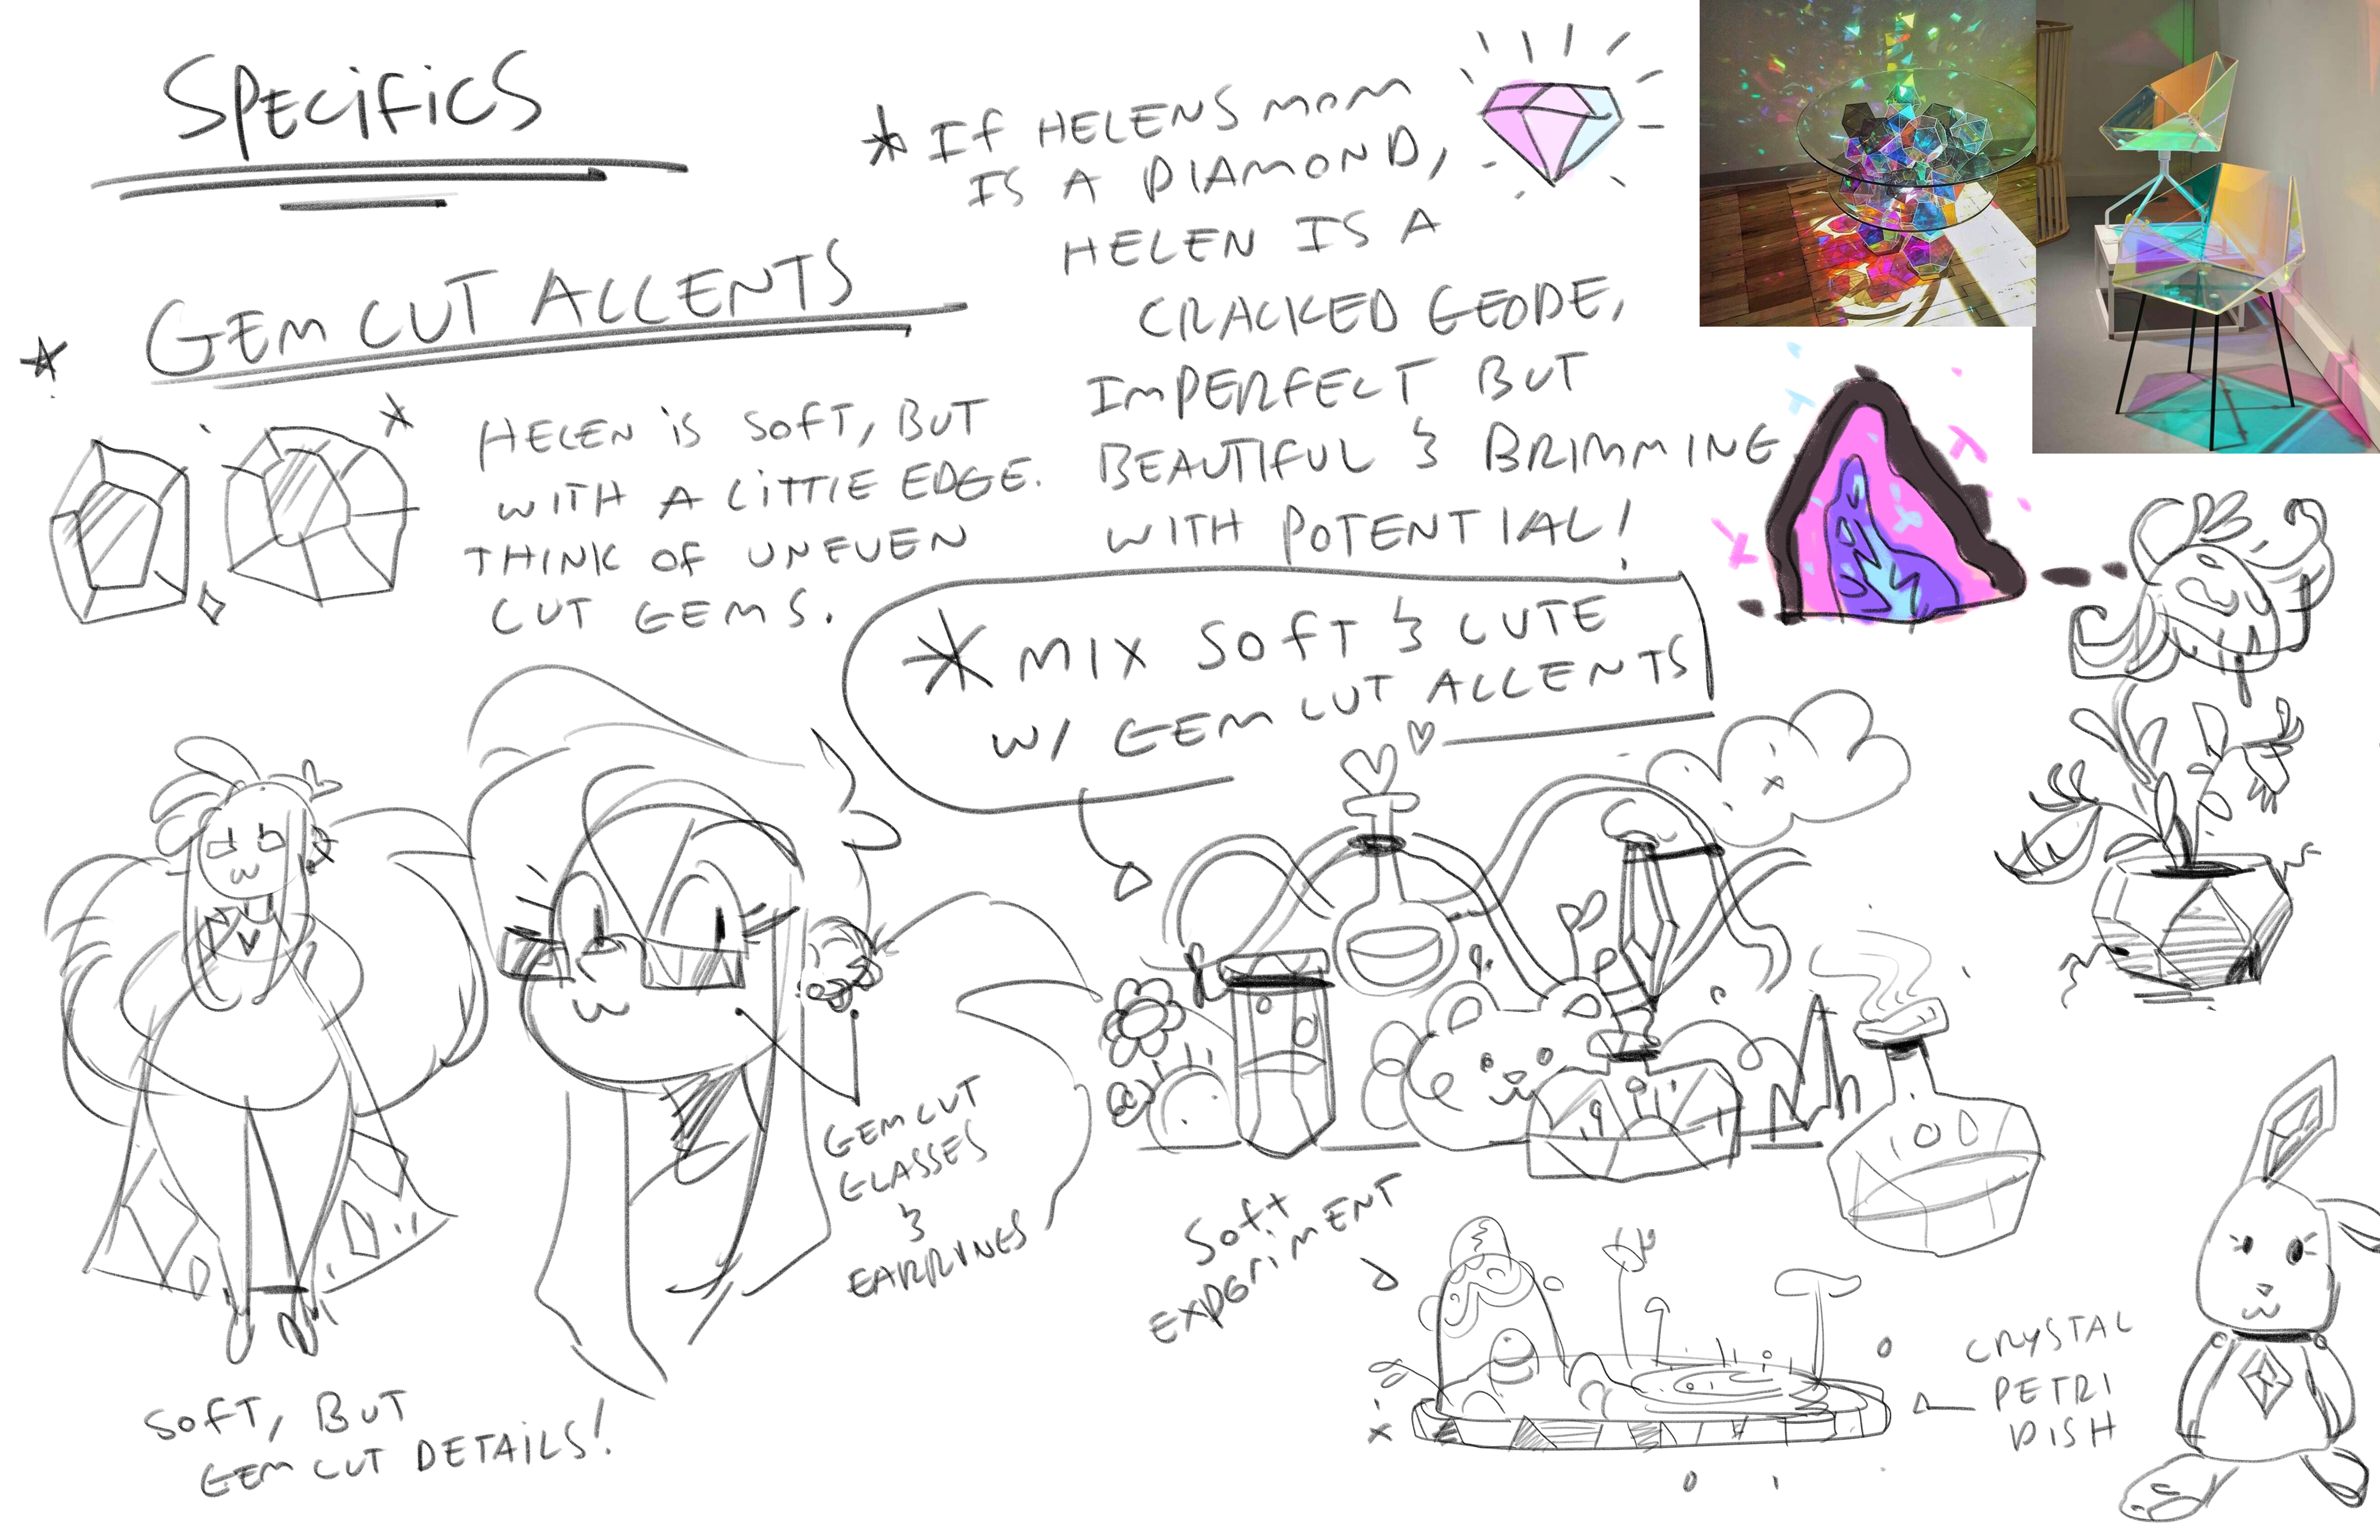 SPECIFICS
* GEM CUT ACCENTS
HELEN IS SOFT, BUT
WITH A LITTLE EDGE.
THINK OF UNEVEN
CUT GEMS.
* IF HELENS MOM
IS A DIAMOND,
HELEN IS A
CRACKED GEODE,
IMPERFECT BUT
BEAUTIFUL & BRIMMING
WITH POTENTIAL!
* MIX SOFT & CUTE
W/ GEM CUT ACCENTS
GEM CUT
GLASSES
&
EARRINGS
SOFT, BUT
GEM CUT DETAILS!
SOFT
EXPERIMENT
CRYSTAL
PETRI
DISH